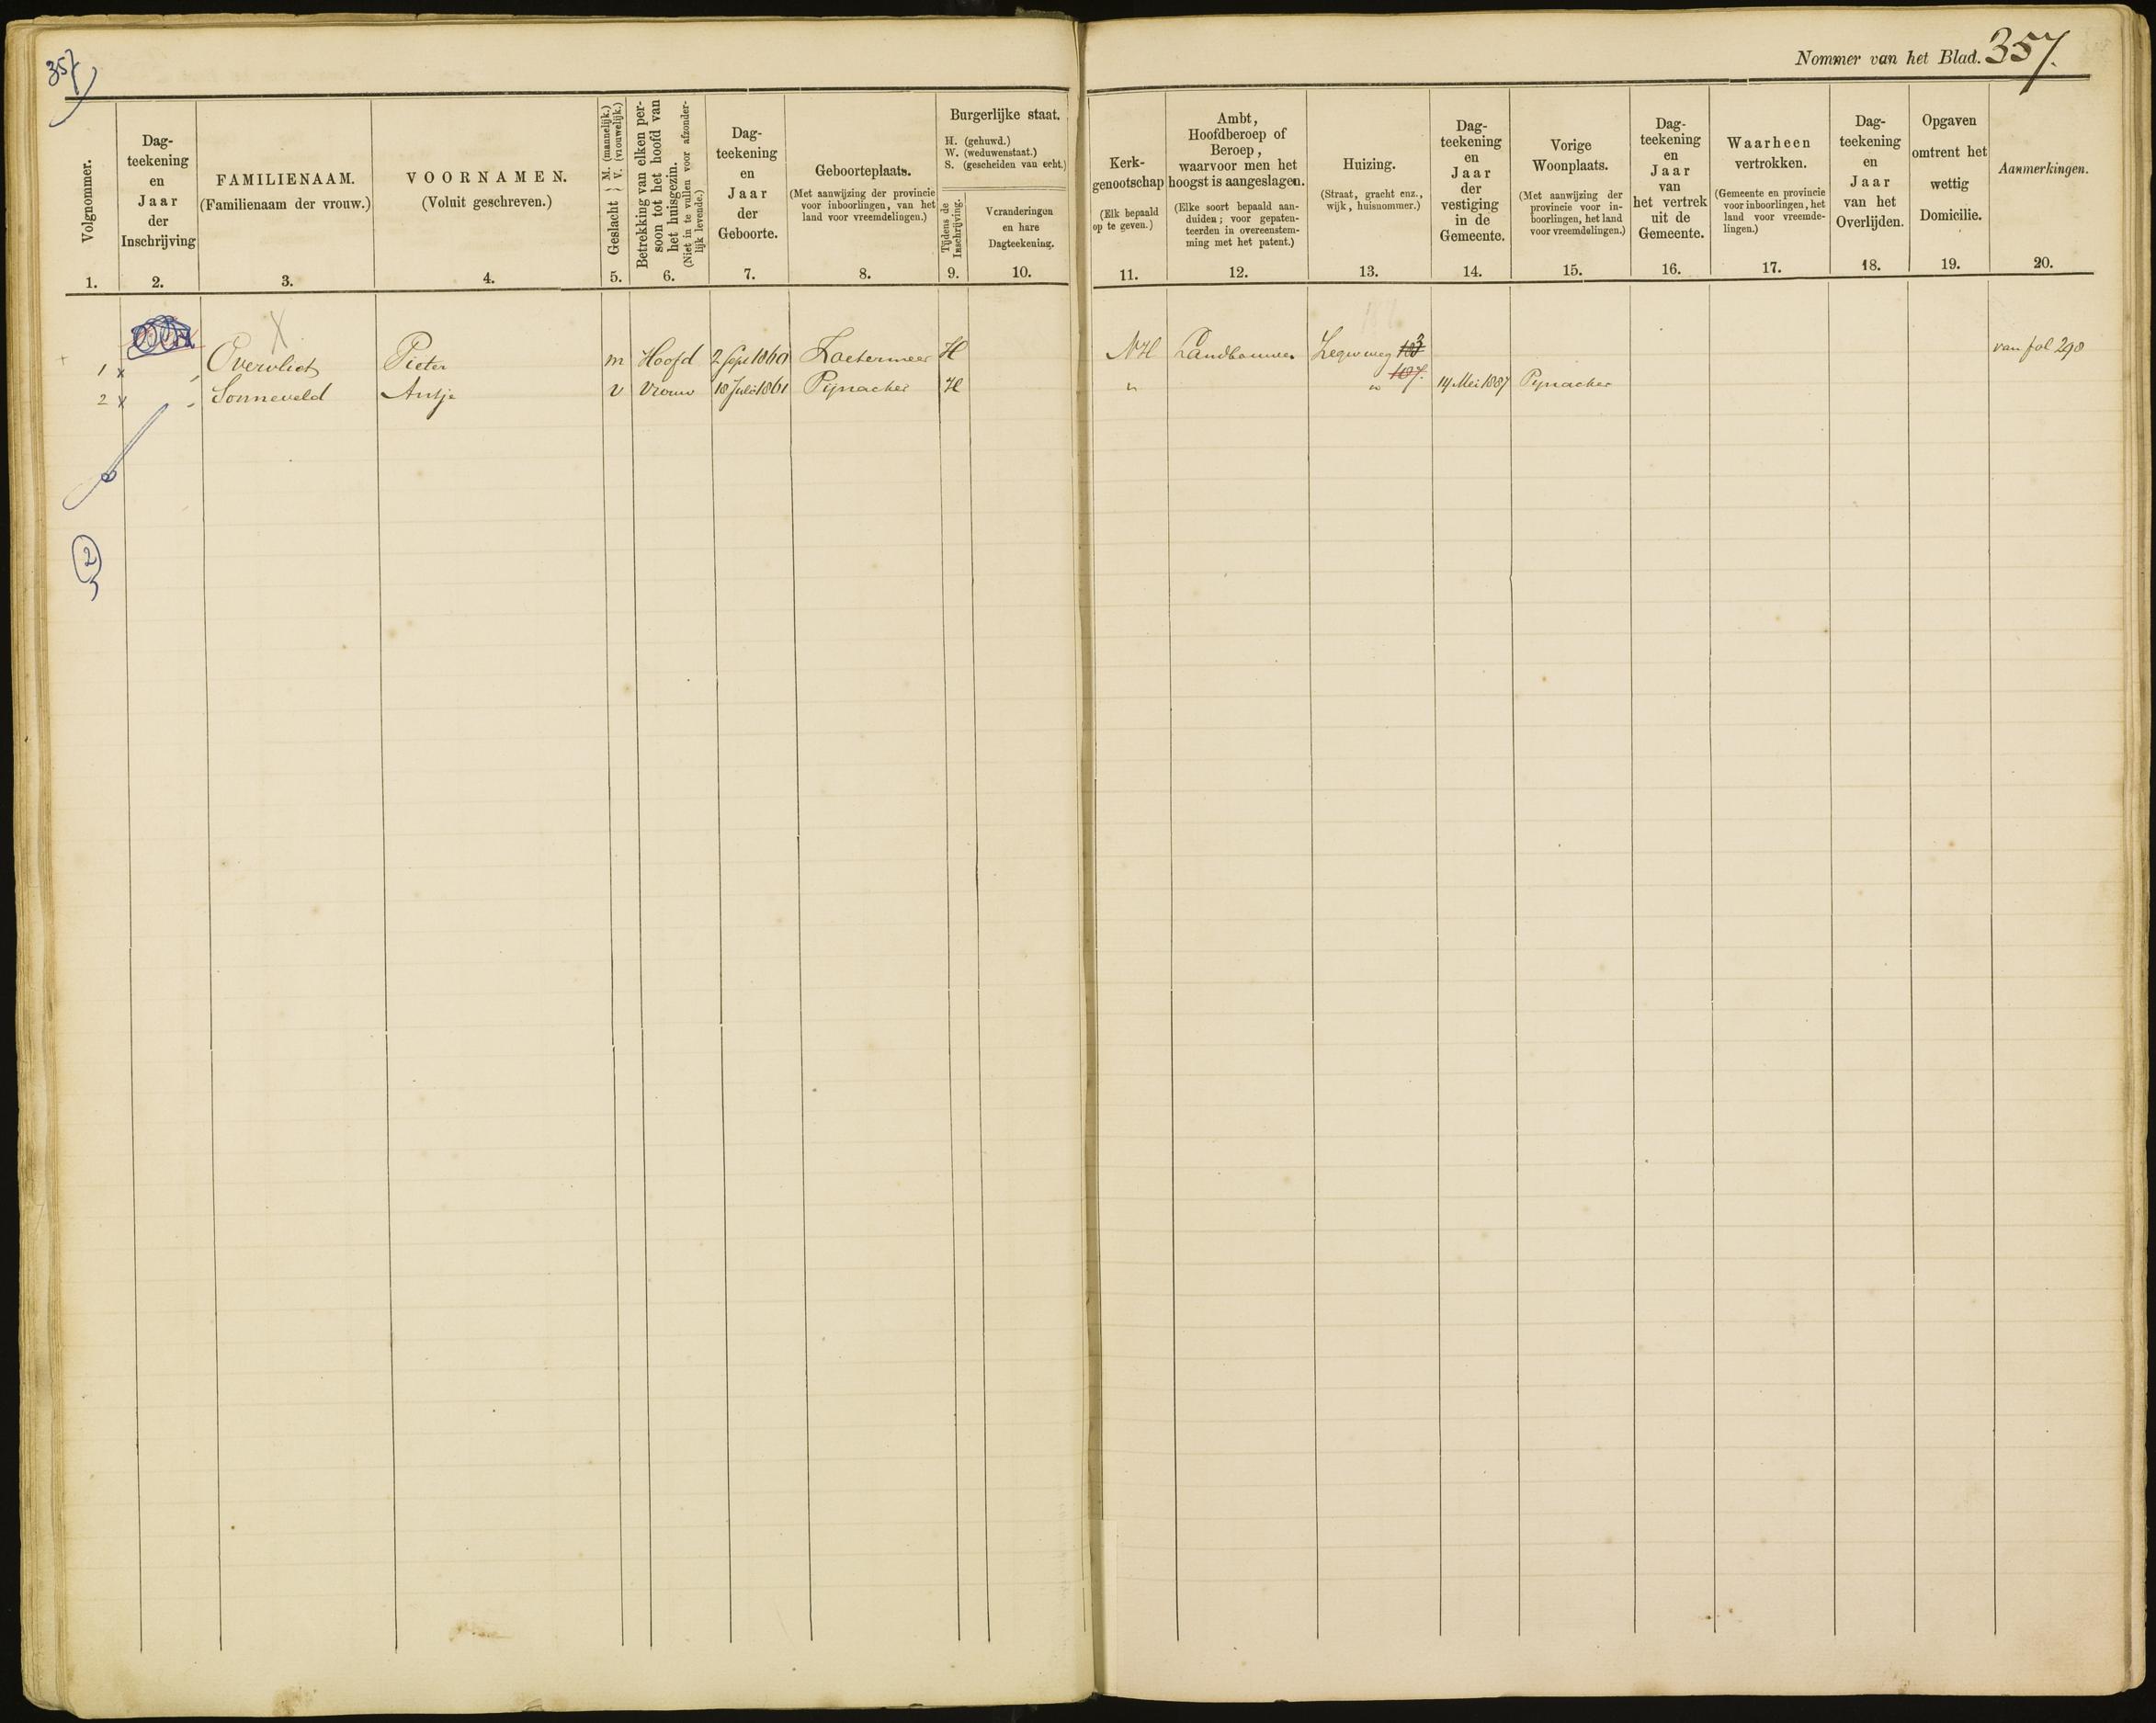 357
Nommer van het Blad. 357.
Volgnommer.
1.
Dag-
teekening
en
Jaar
der
Inschrijving
2.
FAMILIENAAM.
(Familienaam der vrouw.)
3.
VOORNAMEN.
(Voluit geschreven.)
4.
Geslacht } M. (mannelijk.)
V. (vrouwelijk.)
5.
Betrekking van elken per-
soon tot het hoofd van
het huisgezin.
(Niet in te vullen voor afzonder-
lijk levende.)
6.
Dag-
teekening
en
Jaar
der
Geboorte.
7.
Geboorteplaats.
(Met aanwijzing der provincie
voor inboorlingen, van het
land voor vreemdelingen.)
8.
Burgerlijke staat.
H. (gehuwd.)
W. (weduwenstaat.)
S. (gescheiden van echt.)
Tijdens de
Inschrijving.
9.
Veranderingen
en hare
Dagteekening.
10.
Kerk-
genootschap
(Elk bepaald
op te geven.)
11.
Ambt,
Hoofdberoep of
Beroep,
waarvoor men het
hoogst is aangeslagen.
(Elke soort bepaald aan-
duiden; voor gepaten-
teerden in overeenstem-
ming met het patent.)
12.
Huizing.
(Straat, gracht enz.,
wijk, huisnommer.)
13.
Dag-
teekening
en
Jaar
der
vestiging
in de
Gemeente.
14.
Vorige
Woonplaats.
(Met aanwijzing der
provincie voor in-
boorlingen, het land
voor vreemdelingen.)
15.
Dag-
teekening
en
Jaar
van
het vertrek
uit de
Gemeente.
16.
Waarheen
vertrokken.
(Gemeente en provincie
voor inboorlingen, het
land voor vreemde-
lingen.)
17.
Dag-
teekening
en
Jaar
van het
Overlijden.
18.
Opgaven
omtrent het
wettig
Domicilie.
19.
Aanmerkingen.
20.
1 x Overvliet Pieter m Hoofd 2 Sept 1860 Zoetermeer H NH Landbouwer Zegwweg 103 van fol 298
107.
2 x Sonneveld Antje v Vrouw 18 Juli 1861 Pijnacker H " " 14 Mei 1887 Pijnacker
2